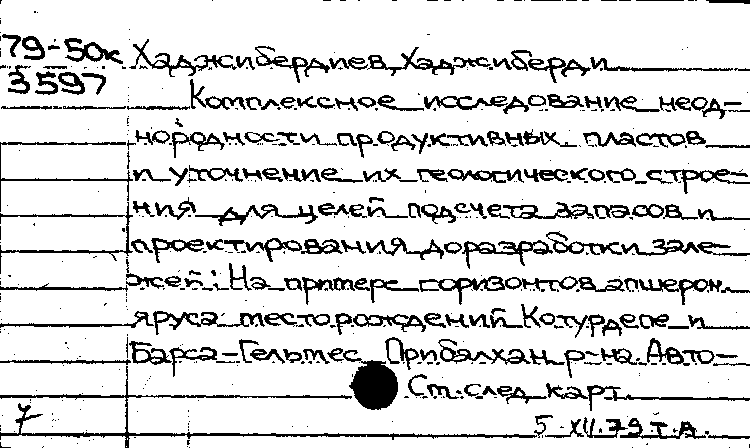 79-50к Хаджибердиев, Хаджиберди
3597
Комплексное исследование неод-
нородности продуктивных пластов
и уточнение их геологического строе-
ния для целей подсчета запасов и
проектирования доразработки зале-
жей: На примере горизонтов апшерон.
яруса месторождений Котурдепе и
Барса-Гельмес Прибалхан. р-на. Авто-
См. след карт.
7
5 XII.79 Т.А.